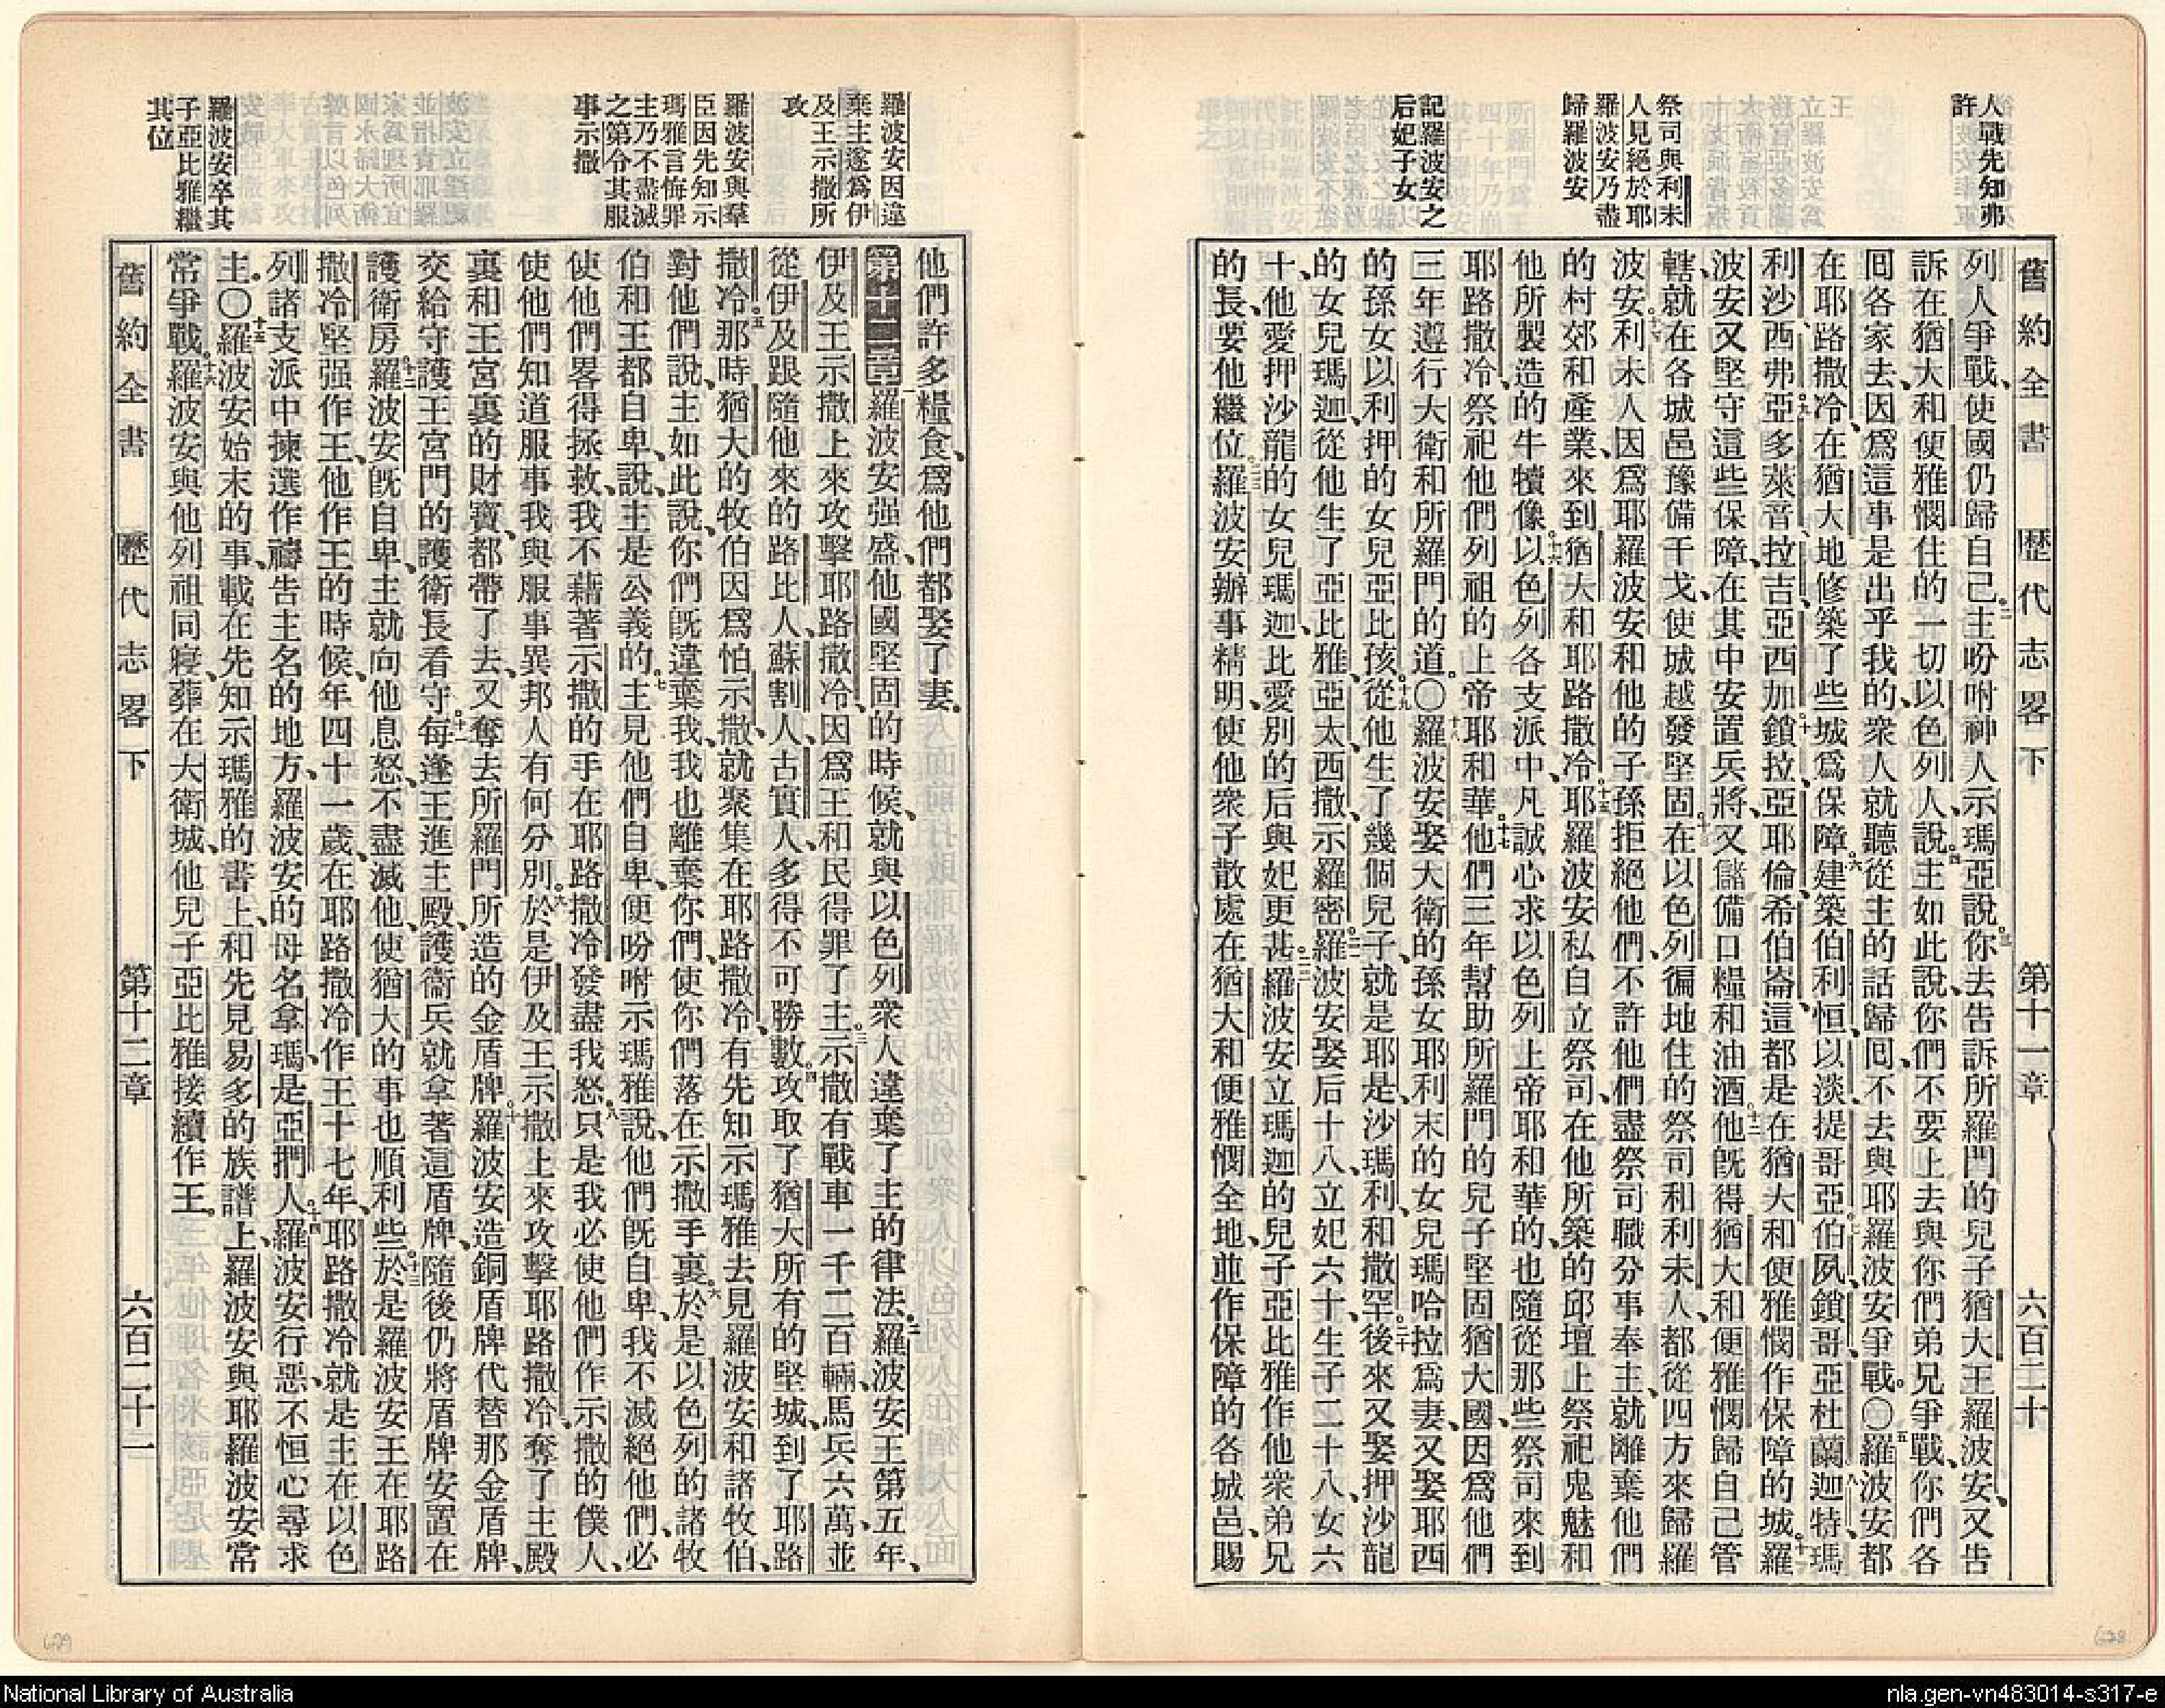 人戰先知弗
許
祭司與利未
人見絕於耶
羅波安乃盡
歸羅波安
記羅波安之
后妃子女
舊約全書 歷代志畧下 第十一章 六百二十
列人爭戰、使國仍歸自己。二主吩咐神人示瑪亞說、三你去告訴所羅門的兒子猶大王羅波安、又告
訴在猶大和便雅憫住的一切以色列人、說、四主如此說、你們不要上去與你們弟兄爭戰、你們各
囘各家去、因爲這事是出乎我的、衆人就聽從主的話歸囘、不去與耶羅波安爭戰。〇五羅波安都
在耶路撒冷、在猶大地修築了些城爲保障。六建築伯利恒、以淡、提哥亞、七伯夙、鎖哥、亞杜蘭、八迦特、瑪
利沙、西弗、九亞多萊音、拉吉、亞西加、十鎖拉、亞耶倫、希伯崙、這都是在猶大和便雅憫作保障的城。十一羅
波安又堅守這些保障、在其中安置兵將、又儲備口糧和油酒。十二他旣得猶大和便雅憫歸自己管
轄、就在各城邑豫備干戈、使城越發堅固。十三在以色列徧地住的祭司和利未人、都從四方來歸羅
波安。十四利未人因爲耶羅波安和他的子孫拒絕他們、不許他們盡祭司職分事奉主、就離棄他們
的村郊和產業、來到猶大和耶路撒冷。十五耶羅波安私自立祭司、在他所築的邱壇上祭祀鬼魅和
他所製造的牛犢像。十六以色列各支派中、凡誠心求以色列上帝耶和華的、也隨從那些祭司來到
耶路撒冷、祭祀他們列祖的上帝耶和華。十七他們三年幫助所羅門的兒子堅固猶大國、因爲他們
三年遵行大衛和所羅門的道。〇十八羅波安娶大衛的孫女耶利末的女兒瑪哈拉爲妻、又娶耶西
的孫女以利押的女兒亞比孩。十九從他生了幾個兒子、就是耶是、沙瑪利、和撒罕。二十後來又娶押沙龍
的女兒瑪迦、從他生了亞比雅、亞太、西撒、示羅密。二一羅波安娶后十八、立妃六十、生子二十八、女六
十、他愛押沙龍的女兒瑪迦、比愛別的后與妃更甚。二二羅波安立瑪迦的兒子亞比雅作他衆弟兄
的長、要他繼位。二三羅波安辦事精明、使他衆子散處在猶大和便雅憫全地、並作保障的各城邑、賜
羅波安因違
棄主遂爲伊
及王示撒所
攻
羅波安與羣
臣因先知示
瑪雅言悔罪
主乃不盡滅
之第令其服
事示撒
羅波安卒其
子亞比雅繼
其位
他們許多糧食、爲他們都娶了妻。
第十二章羅波安强盛、他國堅固的時候、就與以色列衆人違棄了主的律法。二羅波安王第五年、
伊及王示撒上來攻擊耶路撒冷、因爲王和民得罪了主。三示撒有戰車一千二百輛、馬兵六萬、並
從伊及跟隨他來的路比人、蘇割人、古實人、多得不可勝數。四攻取了猶大所有的堅城、到了耶路
撒冷。五那時猶大的牧伯因爲怕示撒、就聚集在耶路撒冷、有先知示瑪雅去見羅波安和諸牧伯、
對他們說、主如此說、你們旣違棄我、我也離棄你們、使你們落在示撒手裏。六於是以色列的諸牧
伯和王都自卑、說、主是公義的。七主見他們自卑、便吩咐示瑪雅說、他們旣自卑、我不滅絕他們、必
使他們畧得拯救、我不藉著示撒的手在耶路撒冷發盡我怒。八只是我必使他們作示撒的僕人、
使他們知道服事我與服事異邦人有何分別。九於是伊及王示撒上來攻擊耶路撒冷、奪了主殿
裏和王宮裏的財寶、都帶了去、又奪去所羅門所造的金盾牌。十羅波安造銅盾牌代替那金盾牌、
交給守護王宮門的護衛長看守。十一每逢王進主殿、護衛兵就拿著這盾牌、隨後仍將盾牌安置在
護衛房。十二羅波安旣自卑、主就向他息怒、不盡滅他、使猶大的事也順利些。十三於是羅波安王在耶路
撒冷堅强作王、他作王的時候、年四十一歲、在耶路撒冷作王十七年、耶路撒冷就是主在以色
列諸支派中揀選作禱告主名的地方、羅波安的母名拿瑪、是亞捫人。十四羅波安行惡、不恒心尋求
主。〇十五羅波安始末的事、載在先知示瑪雅的書上、和先見易多的族譜上、羅波安與耶羅波安常
常爭戰。十六羅波安與他列祖同寢、葬在大衛城、他兒子亞比雅接續作王。
舊約全書 歷代志畧下 第十二章 六百二十一
629
628
National Library of Australia
nla.gen-vn483014-s317-e